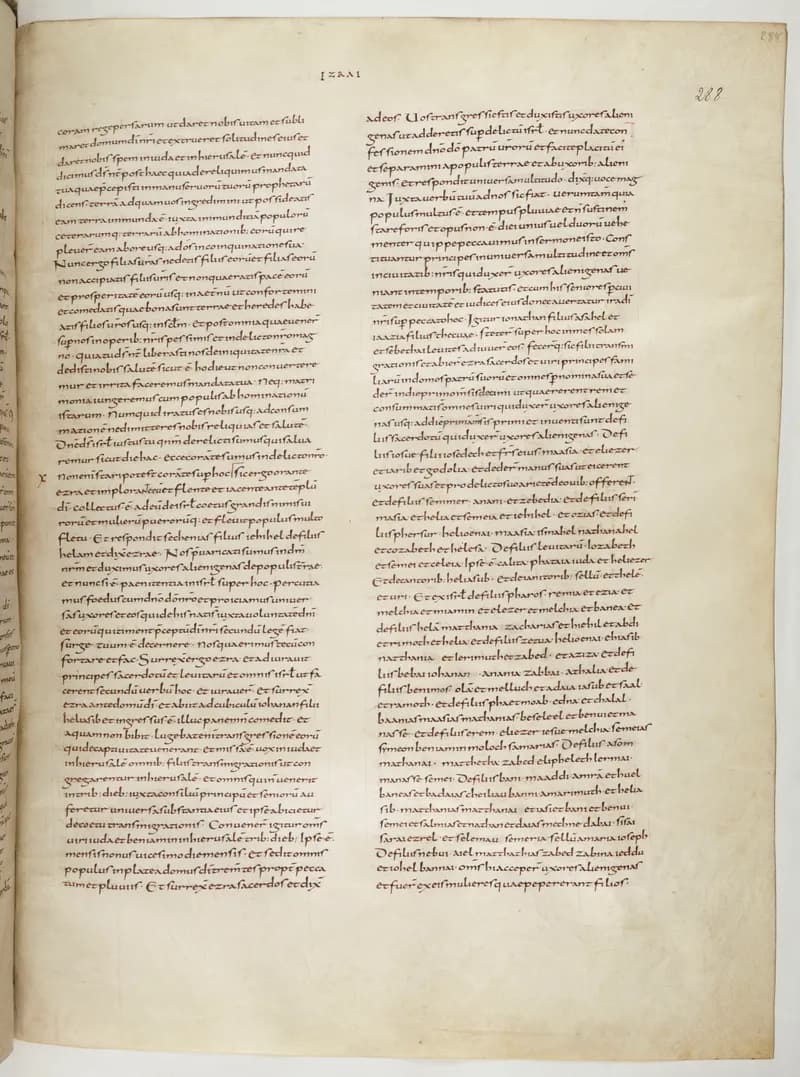 IZRAI
288
coram rege persarum ut daret nobis uitam et subli
maret domum dī nrī et extrueret solitudines eius et
daret nobis spem in iuda et in hierusalē· Et nunc quid
dicimus dś nr̄ post haec quia dereliquimus mandata
tua quae p̄cepisti in manu seruorū tuorū prophetarū
dicens· terrā ad quam uos ingredimini ut possideatis
eam terra inmunda ē· iuxta inmunditiā populorū
ceterarumq; terrarū abhominationib; eorū qui re
pleuer̄ eam ab ore usq; ad os in coinquinatione sua·
Nunc ergo filias ur̄as ne detis filiis eorū et filias eorū
non accipiatis filiis ur̄is et non quaeratis pacē eorū
et prosperitatē eorū usq; in aet̄nū ut confortemini
et comedatis quae bona sunt terrae et heredes habe
atis filios ur̄os usq; in sclm̄· Et post omnia quae uener̄
sup nos in operib; nr̄is pessimis et in delicto nr̄o mag
no· quia tu dś nr̄ liberasti nos de iniquitate nr̄a et
dedisti nobis salutē sicut ē hodie ut non conuertere
mur et irrita faceremus mandata tua· Neq; matri
monia iungeremus cum populis abhominationū
istarum· Numquid iratus es nobis usq; ad consum
mationē ne dimitteres nobis reliquias et salutē·
Dn̄e dś isrl̄ iustus es tu qm̄ derelicti sumus qui salua
remur sicut die hac· Ecce corā te sumus in delicto nr̄o
non enim stari potest corā te sup hoc· Sic ergo orante
ezra et implorante eū et flente et iacente ante teplū
dī· collectus ē ad eū de isrl̄ coetus grandis nimis ui
rorū et mulierū puerorūq; et fleuit populus multo
fletu· Et respondit sechenias filius iehihel de filiis
helam et dix̄ ezrae· Nos p̄uaricati sumus in dm̄
nr̄m et duximus uxores alienigenas de populis t̄rae·
et nunc si ē paenitentia in isrl̄ super hoc· percutia
mus foedus cum dn̄o dō nr̄o et proiciamus uniuer
sas uxores et eos qui de his nati sunt iuxta uoluntatē dn̄i
et eorū qui timent p̄ceptū dn̄i nr̄i secundū legē fiat·
surge· tuum ē decernere· Nosq; erimus tecū con
fortare et fac· Surrex̄ ergo ezra· et adiurauit
principes sacerdotū et leuitarū et omnis isrl̄ ut fa
cerent secundū uerbū hoc· Et iurauer̄· Et surrex̄
ezra ante domū dī· Et abiit ad cubiculū iohanan filii
heliasib et ingressus ē· illuc panem n̄ comedit· et
aquam non bibit· Lugebat eni transgressionē eorū
qui de captiuitate uenerant· Et missa ē uox in iuda et
in hierusalē omnib; filiis transmigrationis ut con
gregarentur in hierusalē· et omnis qui n̄ uenerit
in trib; dieb; iuxta consiliū principū et seniorū au
feretur uniuersa substantia eius et ipse abicietur
de coetu transmigrationis· Conuener̄ igitur oms̄
uiri iuda et beniamin in hierusalē trib; dieb; Ipse ē·
mensis nonus uicesimo die mensis· Et sedit omnis
populus in platea domus dī trem̄tes propt̄ pecca
tum et pluuiis· Et surrex̄ ezra sacerdos et dix̄
ad eos· Uos transgressi estis et duxistis uxores alieni
genas ut adderetis sup delictū isrl̄· Et nunc date con
fessionem dn̄o dō patrū ur̄orū et facite placitū ei
et separamini a populis terrae et ab uxorib; alieni
genis· Et respondit uniuersa multitudo· dix̄q; uoce mag
na· Iuxta uerbū tuū ad nos sic fiat· uerumtam̄ quia
populus multus ē· et tempus pluuiae et n̄ sustinem
stare foris et opus non ē diei unius uel duorū uehe
menter quippe peccauimus in sermone isto· Cons
tituantur principes in uniuersa multitudine et oms̄
in ciuitatib; nr̄is qui duxer̄ uxores alienigenas ue
niant in temporib; statutis· et cum his seniores p ciui
tatem et ciuitatē et iudices eius donec auertatur ira dī
nr̄i sup peccato hoc· Igitur ionathan filius asahel et
iaazia filius thecuae· steter̄ super hoc in mesolam
et sebethai leuites adiuuer̄ eos· fecer̄q; sic filii transm̄
grationis et abier̄ ezra sacerdos et uiri principes fami
liarū in domos patrū suorū et omnes p nomina sua et se
der̄ in die primo m̄sis decimi ut quaererent rem et
consummati s̄ omnes uiri qui duxer̄ uxores alienige
nas usq; ad diē primā m̄sis primi· et inuenti sunt de fi
liis sacerdotū qui duxer̄ uxores alienigenas· De fi
liis iosue· filii iosedech et fr̄s eius maasia et eliezer·
et iarib et godolia· et deder̄ manus suas ut eicerent
uxores suas et pro delicto suo arietē de ouib; offerent·
et de filiis semmer· anani· et zebedia· et de filiis seri
masia et helia et semeia et iehihel· et ozias et de fi
liis phersur· helioenai· maasia ismahel nathanahel
et cozabeth et helesa· De filiis leuitarū· Iozabeth
et semei et celeia· Ipse ē calita· phataia iuda et heliezer
Et de cantorib; heliasub· et de ianitorib; sellū et thele·
et uri· Et ex isrl̄ de filiis pharos· remia et ezia· et
melchia et miamin et elezer et melchia et banea· et
de filiis helā· mathania· zacharias et hiehil et abdi
et rimoth et helia· et de filiis zetua· helioenai· eliasib
nathania· et ierimuth et zabed· et aziza· et de fi
liis bebai· iohanan· anania· zabbai· athalia· et de
filiis benimos· olā et melluch et adaia iasub et saal
et ramoth· et de filiis phaet moab· edna et chalal·
baanias maasias mathanias beseleel et bennui et ma
nasse· et de filiis erem· eliezer iesue melchia semeias
simeon beniamin moloch samarias· De filiis asom
mathanai· mathetha zabed eliphelech iermai·
manasse semei· De filiis bani· maaddi amrā et huel
baneas et badaias cheiliau banni amarimuth et helia
sib· mathanias mathanai· et iasi et bani et bennui
semei et salmias et nathan et daias mechne dabai· sisai
sarai ezrel· et selemau· semeria· sellū amaria ioseph
De filiis nebui· aiel mathathias zabed zabina ieddu
et iohel bannai· oms̄ hi acceper̄ uxores alienigenas
et fuer̄ ex eis mulieres quae pepererant filios·